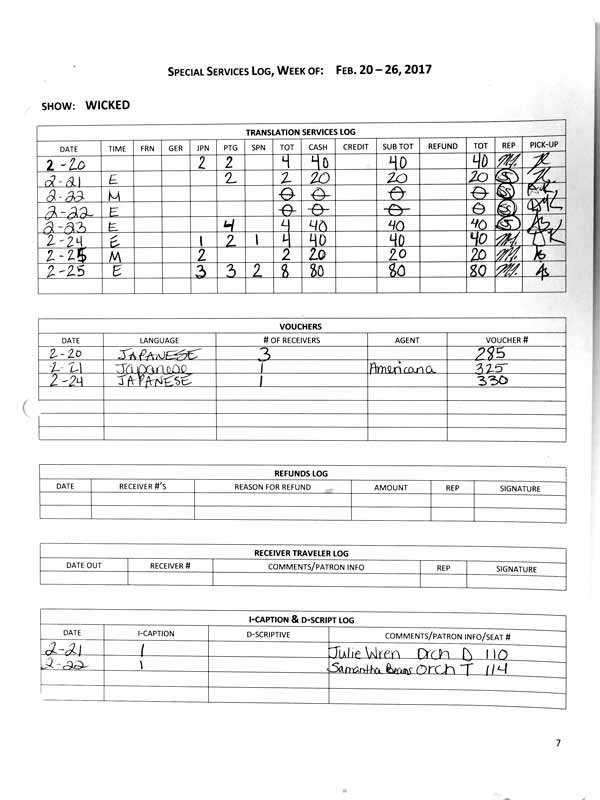 SPECIAL SERVICES LOG, WEEK OF: FEB. 20 – 26, 2017
SHOW: WICKED
TRANSLATION SERVICES LOG
DATE TIME FRN GER JPN PTG SPN TOT CASH CREDIT SUB TOT REFUND TOT REP PICK-UP
2-20 2 2 4 40 40 40
2-21 E 2 2 20 20 20 S
2-22 M 0 0 0 0 S
2-22 E 0 0 0 0 S
2-23 E 4 4 40 40 40 S
2-24 E 1 2 1 4 40 40 40
2-25 M 2 2 20 20 20
2-25 E 3 3 2 8 80 80 80
VOUCHERS
DATE LANGUAGE # OF RECEIVERS AGENT VOUCHER #
2-20 JAPANESE 3 285
2-21 Japanese 1 Americana 325
2-24 JAPANESE 1 330
REFUNDS LOG
DATE RECEIVER #'S REASON FOR REFUND AMOUNT REP SIGNATURE
RECEIVER TRAVELER LOG
DATE OUT RECEIVER # COMMENTS/PATRON INFO REP SIGNATURE
I-CAPTION & D-SCRIPT LOG
DATE I-CAPTION D-SCRIPTIVE COMMENTS/PATRON INFO/SEAT #
2-21 1 Julie Wren Orch D 110
2-22 1 Samantha Orch T 114
7